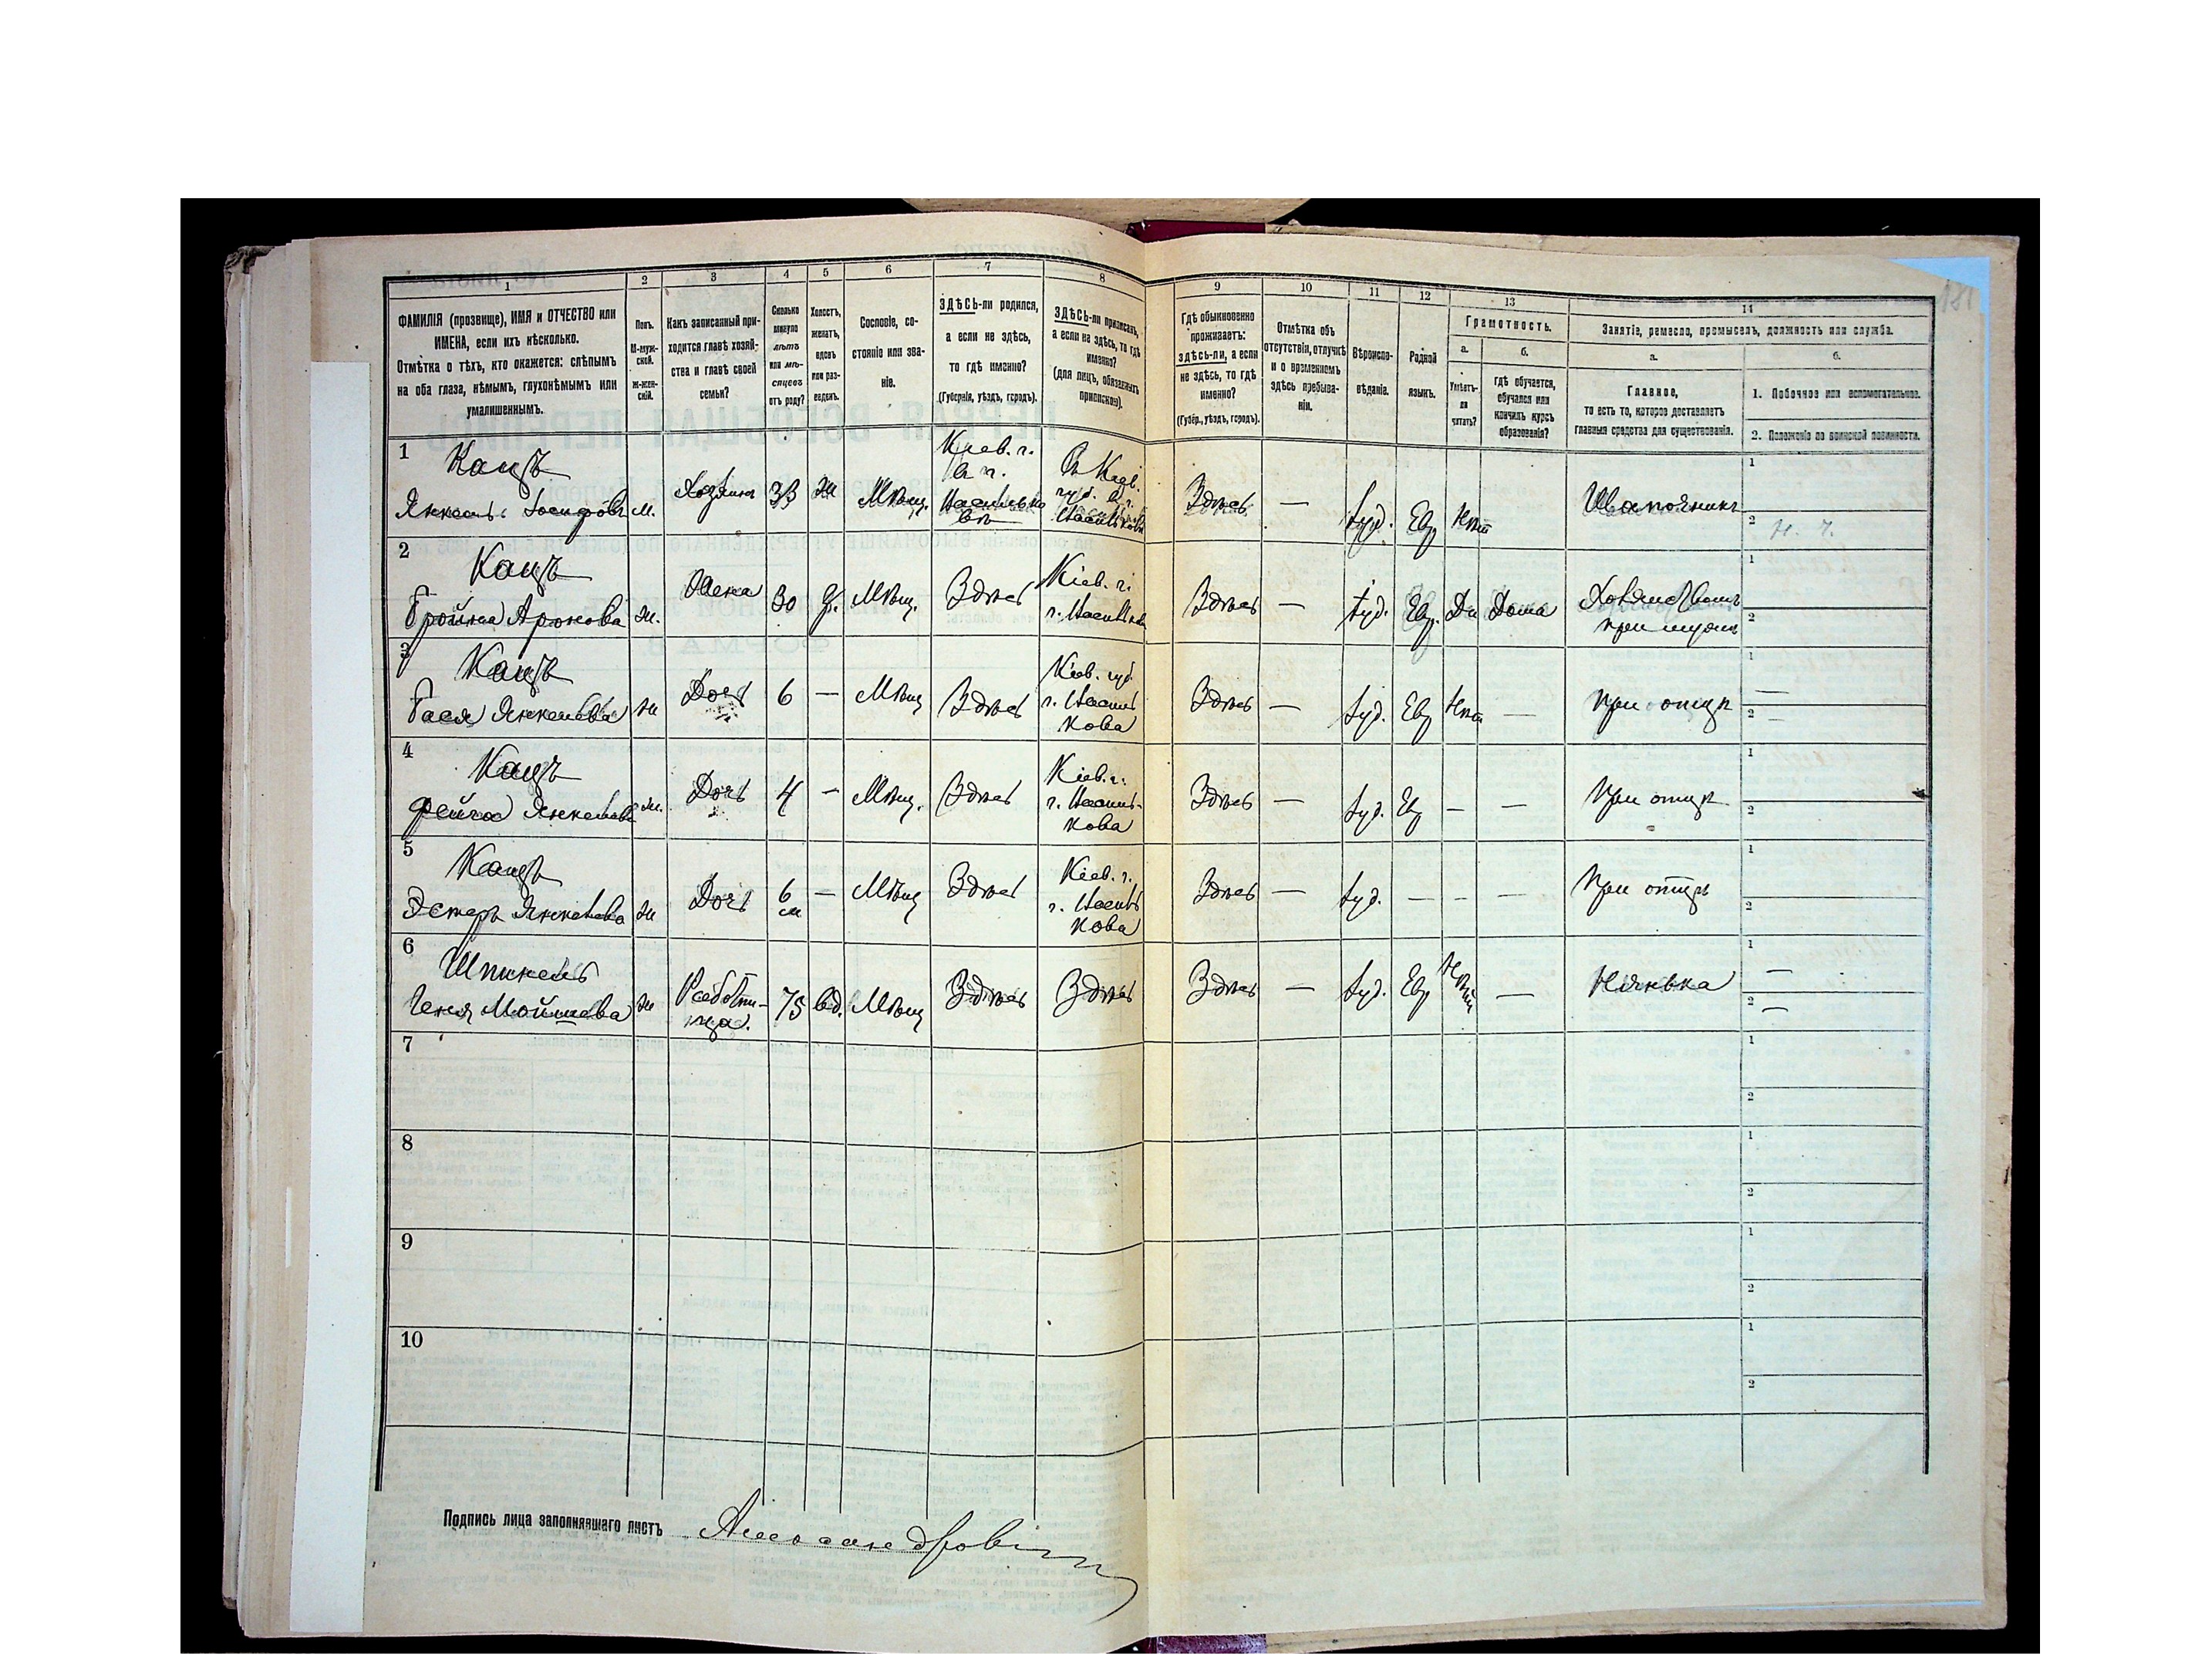 1 2 3 4 5 6 7 8 9 10 11 12 13 14
ФАМИЛІЯ (прозвище), ИМЯ и ОТЧЕСТВО или
ИМЕНА, если ихъ нѣсколько.
Отмѣтка о тѣхъ, кто окажется: слѣпымъ
на оба глаза, нѣмымъ, глухонѣмымъ или
умалишеннымъ.
Полъ.
М-муж-
ской.
Ж-жен-
скій.
Какъ записанный при-
ходится главѣ хозяй-
ства и главѣ своей
семьи?
Сколько
минуло
лѣтъ
или мѣ-
сяцевъ
отъ роду?
Холостъ,
женатъ,
вдовъ
или раз-
веденъ.
Сословіе, со-
стояніе или зва-
ніе.
ЗДѢСЬ-ли родился,
а если не здѣсь,
то гдѣ именно?
(Губернія, уѣздъ, городъ).
ЗДѢСЬ-ли приписанъ,
а если не здѣсь, то гдѣ
именно?
(для лицъ, обязанныхъ
припиской).
Гдѣ обыкновенно
проживаетъ:
здѣсь-ли, а если
не здѣсь, то гдѣ
именно?
(Губер., уѣздъ, городъ).
Отмѣтка объ
отсутствіи, отлучкѣ
и о временномъ
здѣсь пребыва-
ніи.
Вѣроиспо-
вѣданіе.
Родной
языкъ.
Грамотность.
а.
Умѣетъ-
ли
читать?
б.
гдѣ обучается,
обучался или
кончилъ курсъ
образованія?
Занятіе, ремесло, промыселъ, должность или служба.
а.
Главное,
то есть то, которое доставляетъ
главныя средства для существованія.
б.
1. Побочное или вспомогательное.
2. Положеніе по воинской повинности.
1
Кацъ
Янкель Іосифовъ М. Хозяинъ 33 Ж Мѣщ.
Кіев. г.
в г.
Василько
вѣ
Въ Кіев.
губ. в г.
Васильков
Здѣсь — Іуд. Евр Нѣт
1
2
2
Кацъ
Бройна Аронова Ж. Жена 30 З. Мѣщ. Здѣсь
Кіев. г.
г. Васильков
Здѣсь — Іуд. Евр. Да Дома
при мужѣ
1
2
3
Кацъ
Бася Янкелева Ж Дочь 6 — Мѣщ Здѣсь
Кіев. губ
г. Василь
кова
Здѣсь — Іуд. Евр Нѣт — При отцѣ
1 —
2 —
4
Кацъ
Фейга Янкелева Ж. Дочь 4 — Мѣщ. Здѣсь
Кіев. г.
г. Василь-
кова
Здѣсь — Іуд. Евр — — При отцѣ
1
2
5
Кацъ
Эстеръ Янкелева Ж Дочь 6 м — Мѣщ Здѣсь
Кіев. г.
г. Василь
кова
Здѣсь — Іуд. — — — При отцѣ
1
2
6
Шпикель
Геня Мойшева Ж
Работни-
ца.
75 вд. Мѣщ Здѣсь Здѣсь Здѣсь — Іуд. Евр Нѣт — Нянька
1 —
2 —
7
1
2
8
1
2
9
1
2
10
1
2
Подпись лица заполнявшаго листъ